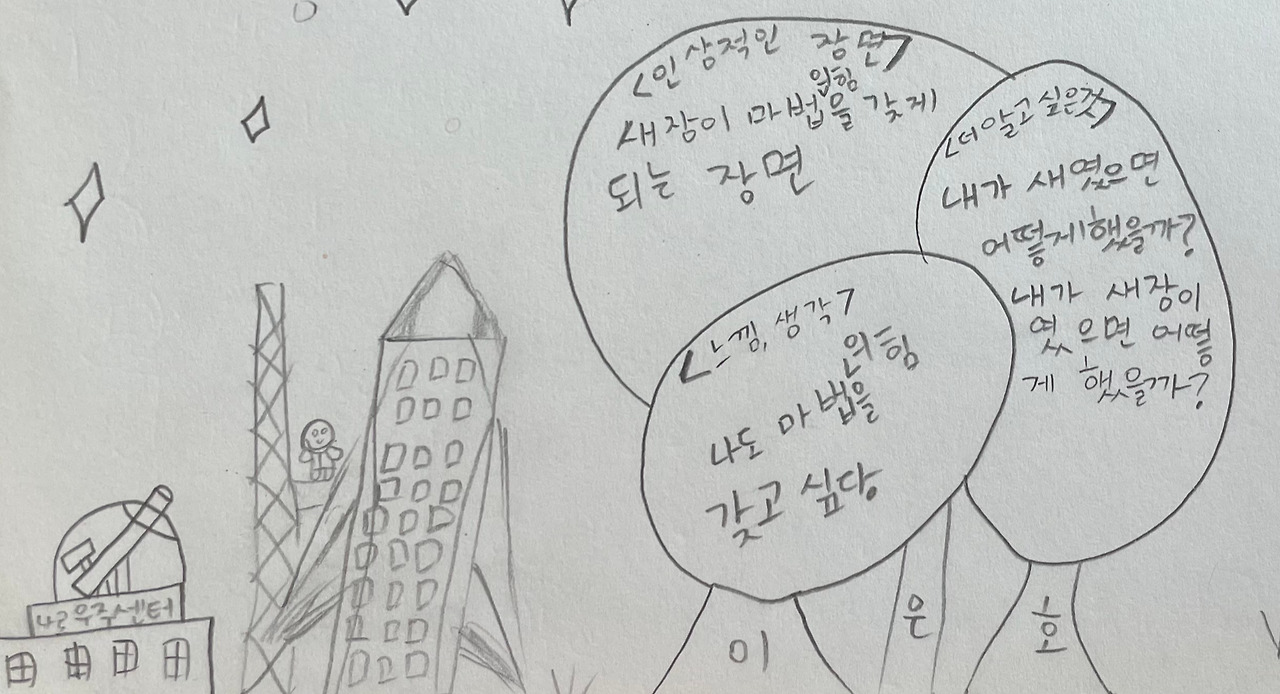 <인상적인 장면>
의힘
새장이 마법을 갖게
되는 장면
<더알고싶은것>
내가 새였으면
어떻게했을까?
내가 새장이
였으면 어떻
게 했을까?
<느낌,생각>
의힘
나도 마법을
갖고 싶당
나로우주센터
이
은
호